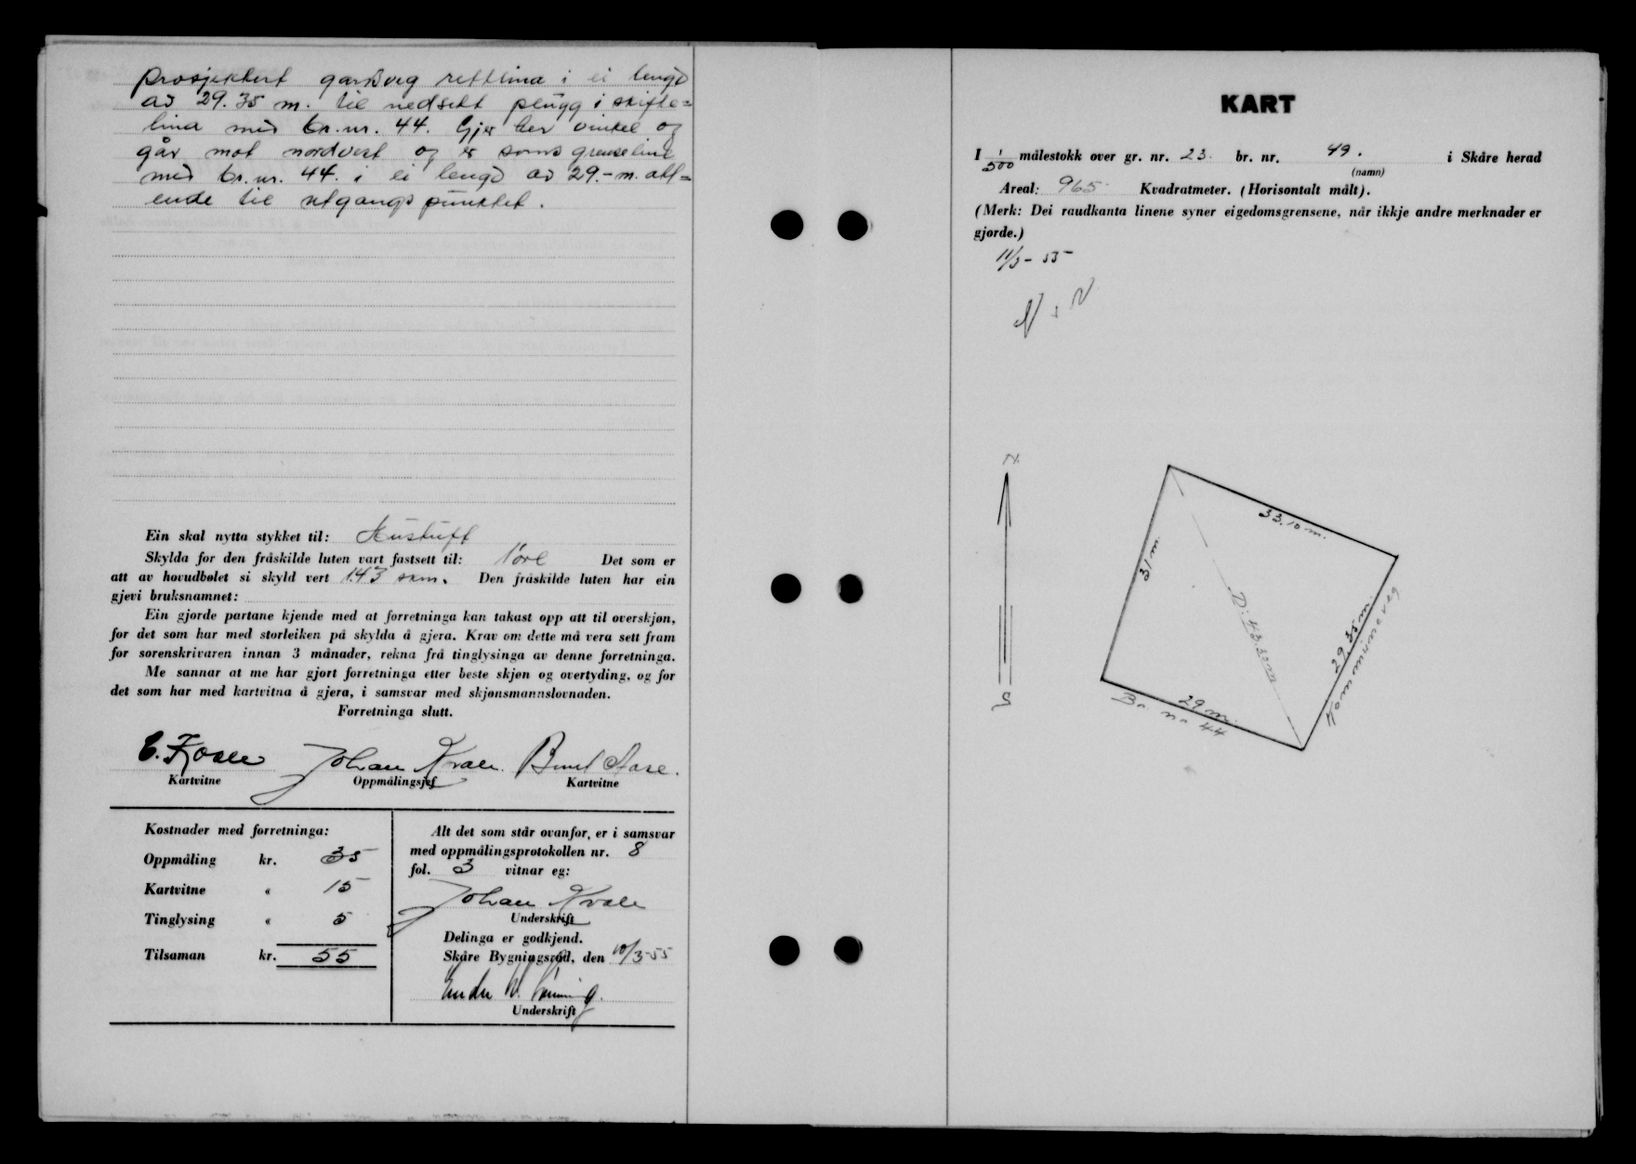 prosjektert gardsveg rettlina i ei lengd
av 29.35 m. til nedsett plugg i skifte=
lina med br.nr. 44. Gjer her vinkel og
går mot nordvest og er sams grenseline
med br.nr. 44. i ei lengd av 29.- m. att=
ende til utgangspunktet.
Ein skal nytta stykket til: Hustuft
Skylda for den fråskilde luten vart fastsett til: 1 øre Det som er
att av hovudbølet si skyld vert 1.43 skm. Den fråskilde luten har ein
gjevi bruksnamnet:
Ein gjorde partane kjende med at forretninga kan takast opp att til overskjøn,
for det som har med storleiken på skylda å gjera. Krav om dette må vera sett fram
for sorenskrivaren innan 3 månader, rekna frå tinglysinga av denne forretninga.
Me sannar at me har gjort forretninga etter beste skjøn og overtyding, og for
det som har med kartvitna å gjera, i samsvar med skjønsmannslovnaden.
Forretninga slutt.
Johan Kvale
Kartvitne Oppmålingsjef Kartvitne
Kostnader med forretninga:
Oppmåling kr. 35
Kartvitne " 15
Tinglysing " 5
Tilsaman kr. 55
Alt det som står ovanfor, er i samsvar
med oppmålingsprotokollen nr. 8
fol. 3 vitnar eg:
Johan Kvale
Underskrift
Delinga er godkjend.
Skåre Bygningsråd, den 10/3-55
Underskrift
KART
I 1/500 målestokk over gr. nr. 23. br. nr. 49. i Skåre herad
(namn)
Areal: 965 Kvadratmeter. (Horisontalt målt).
(Merk: Dei raudkanta linene syner eigedomsgrensene, når ikkje andre merknader er
gjorde.)
11/3-55
N
33.10 m.
31 m.
D: 43.50m
29.35 m.
Kommuneveg
29 m.
Br nr 44
S